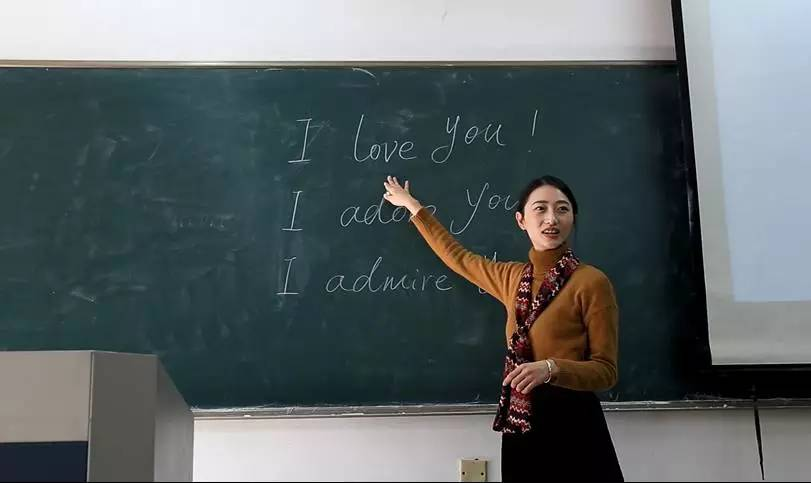 I love You!
I adore You
I admire